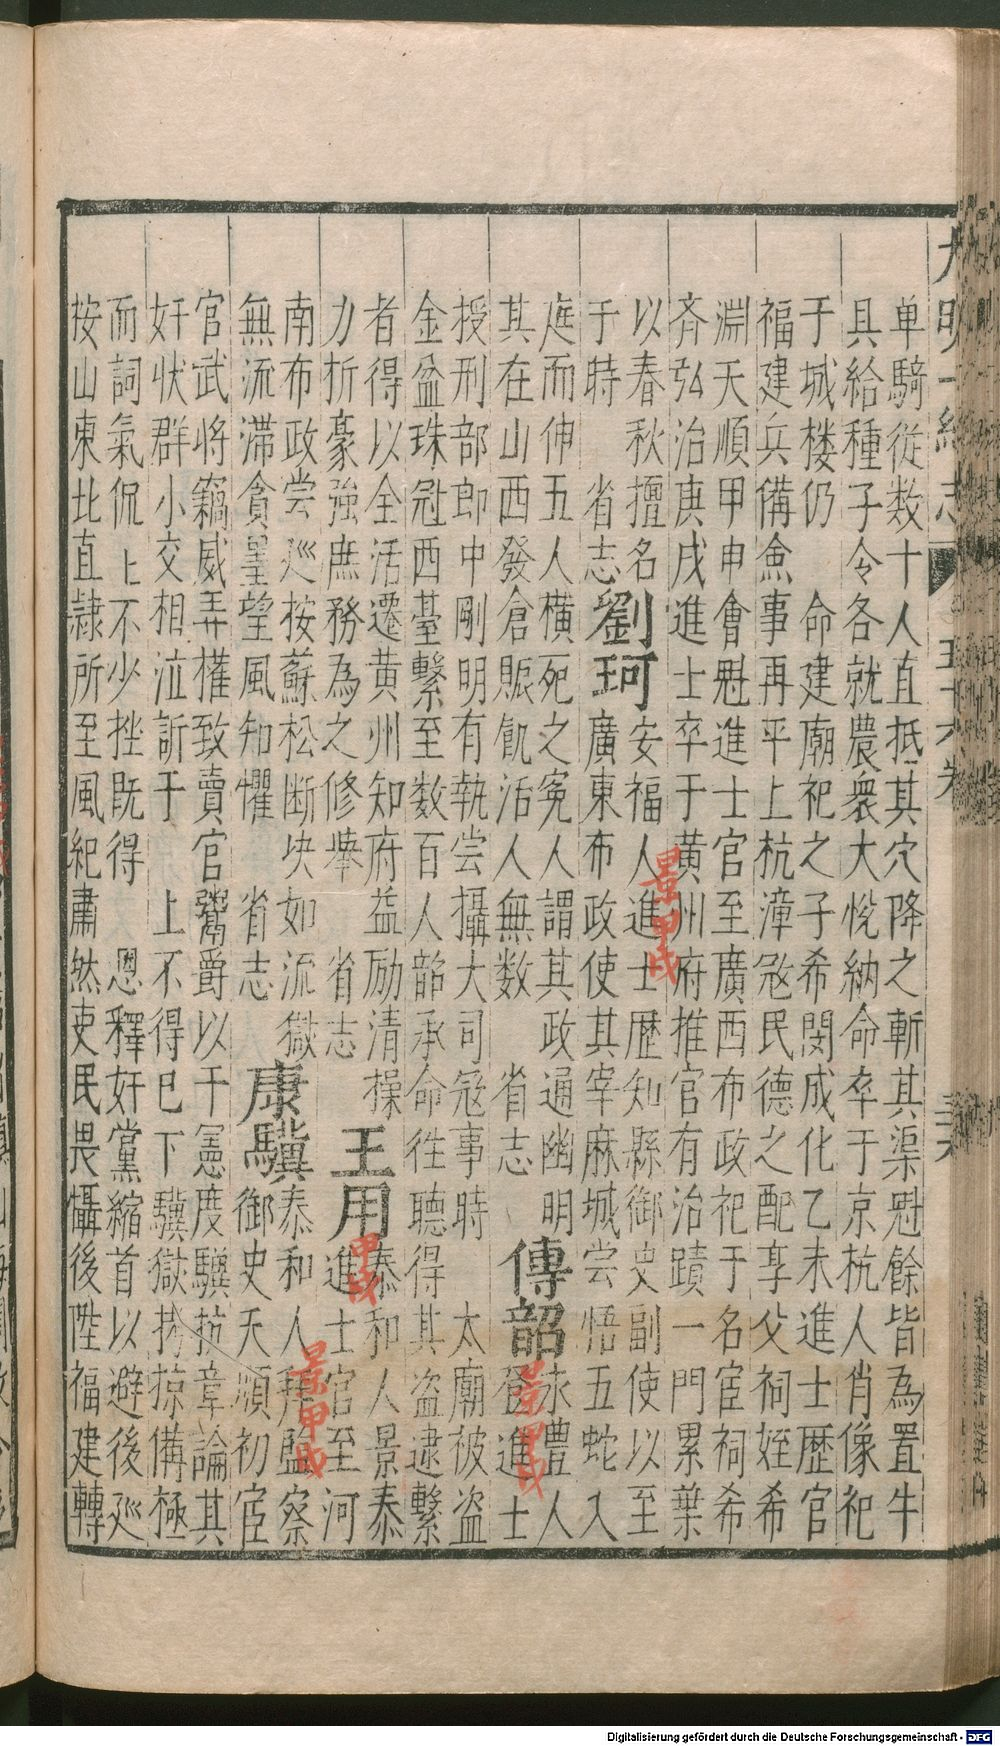 單騎從数十人直抵其穴降之斬其渠魁餘皆為置牛
具給種子令各就農衆大悅納命卒于京杭人肖像祀
于城楼仍　命建廟祀之子希閔成化乙未進士歴官
福建兵備僉事再平上杭漳冦民德之配享父祠姪希
淵天順甲申會魁進士官至廣西布政祀于名宦祠希
齐弘治庚戌進士卒于黄州府推官有治蹟一門累葉
以春秋擅名
于時　省志
劉珂
安福人進士歴知縣御史副使以至
廣東布政使其宰麻城尝悟五蛇入
庭而伸五人横死之寃人謂其政通幽明
其在山西發倉賑飢活人無数　省志
傅韶
永豊人
登進士
授刑部郎中剛明有執尝攝大司冦事時　太廟被盗
金盆珠冠西臺繫至数百人韶承命徃聽得其盗逮繫
者得以全活遷黄州知府益励清操
力折豪強庶務為之修舉　省志
王用
泰和人景泰
進士官至河
南布政尝廵按蘇松断决如流獄
無流滞貪墨望風知懼　省志
康驥
泰和人拜監察
御史天順初宦
官武将竊威弄權致賣官鬻爵以干憲度驥抗章論其
奸状群小交相泣訴于　上不得已下驥獄搒掠備極
而詞氣侃上不少挫既得　恩釋奸黨縮首以避後廵
按山東北直隷所至風紀肅然吏民畏懾後陞福建轉
五十六卷
景甲戌
甲戌
景甲戌
景甲戌
Digitalisierung gefördert durch die Deutsche Forschungsgemeinschaft - DFG